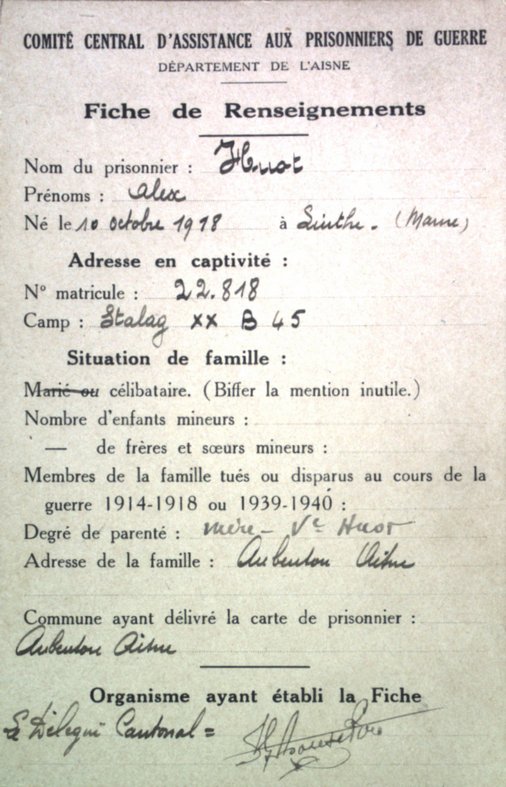 COMITÉ CENTRAL D'ASSISTANCE AUX PRISONNIERS DE GUERRE
DÉPARTEMENT DE L'AISNE
Fiche de Renseignements
Nom du prisonnier : Huot
Prénoms : Alex
Né le 10 octobre 1918 à Linthe. (Marne)
Adresse en captivité :
N° matricule : 22.818
Camp : Stalag XX B 45
Situation de famille :
Marié ou célibataire. (Biffer la mention inutile.)
Nombre d'enfants mineurs :
— de frères et sœurs mineurs :
Membres de la famille tués ou disparus au cours de la
guerre 1914-1918 ou 1939-1940 :
Degré de parenté : mère - Ve Huot
Adresse de la famille : Aubenton Aisne
Commune ayant délivré la carte de prisonnier :
Aubenton Aisne
Organisme ayant établi la Fiche
Le Délégué Cantonal =